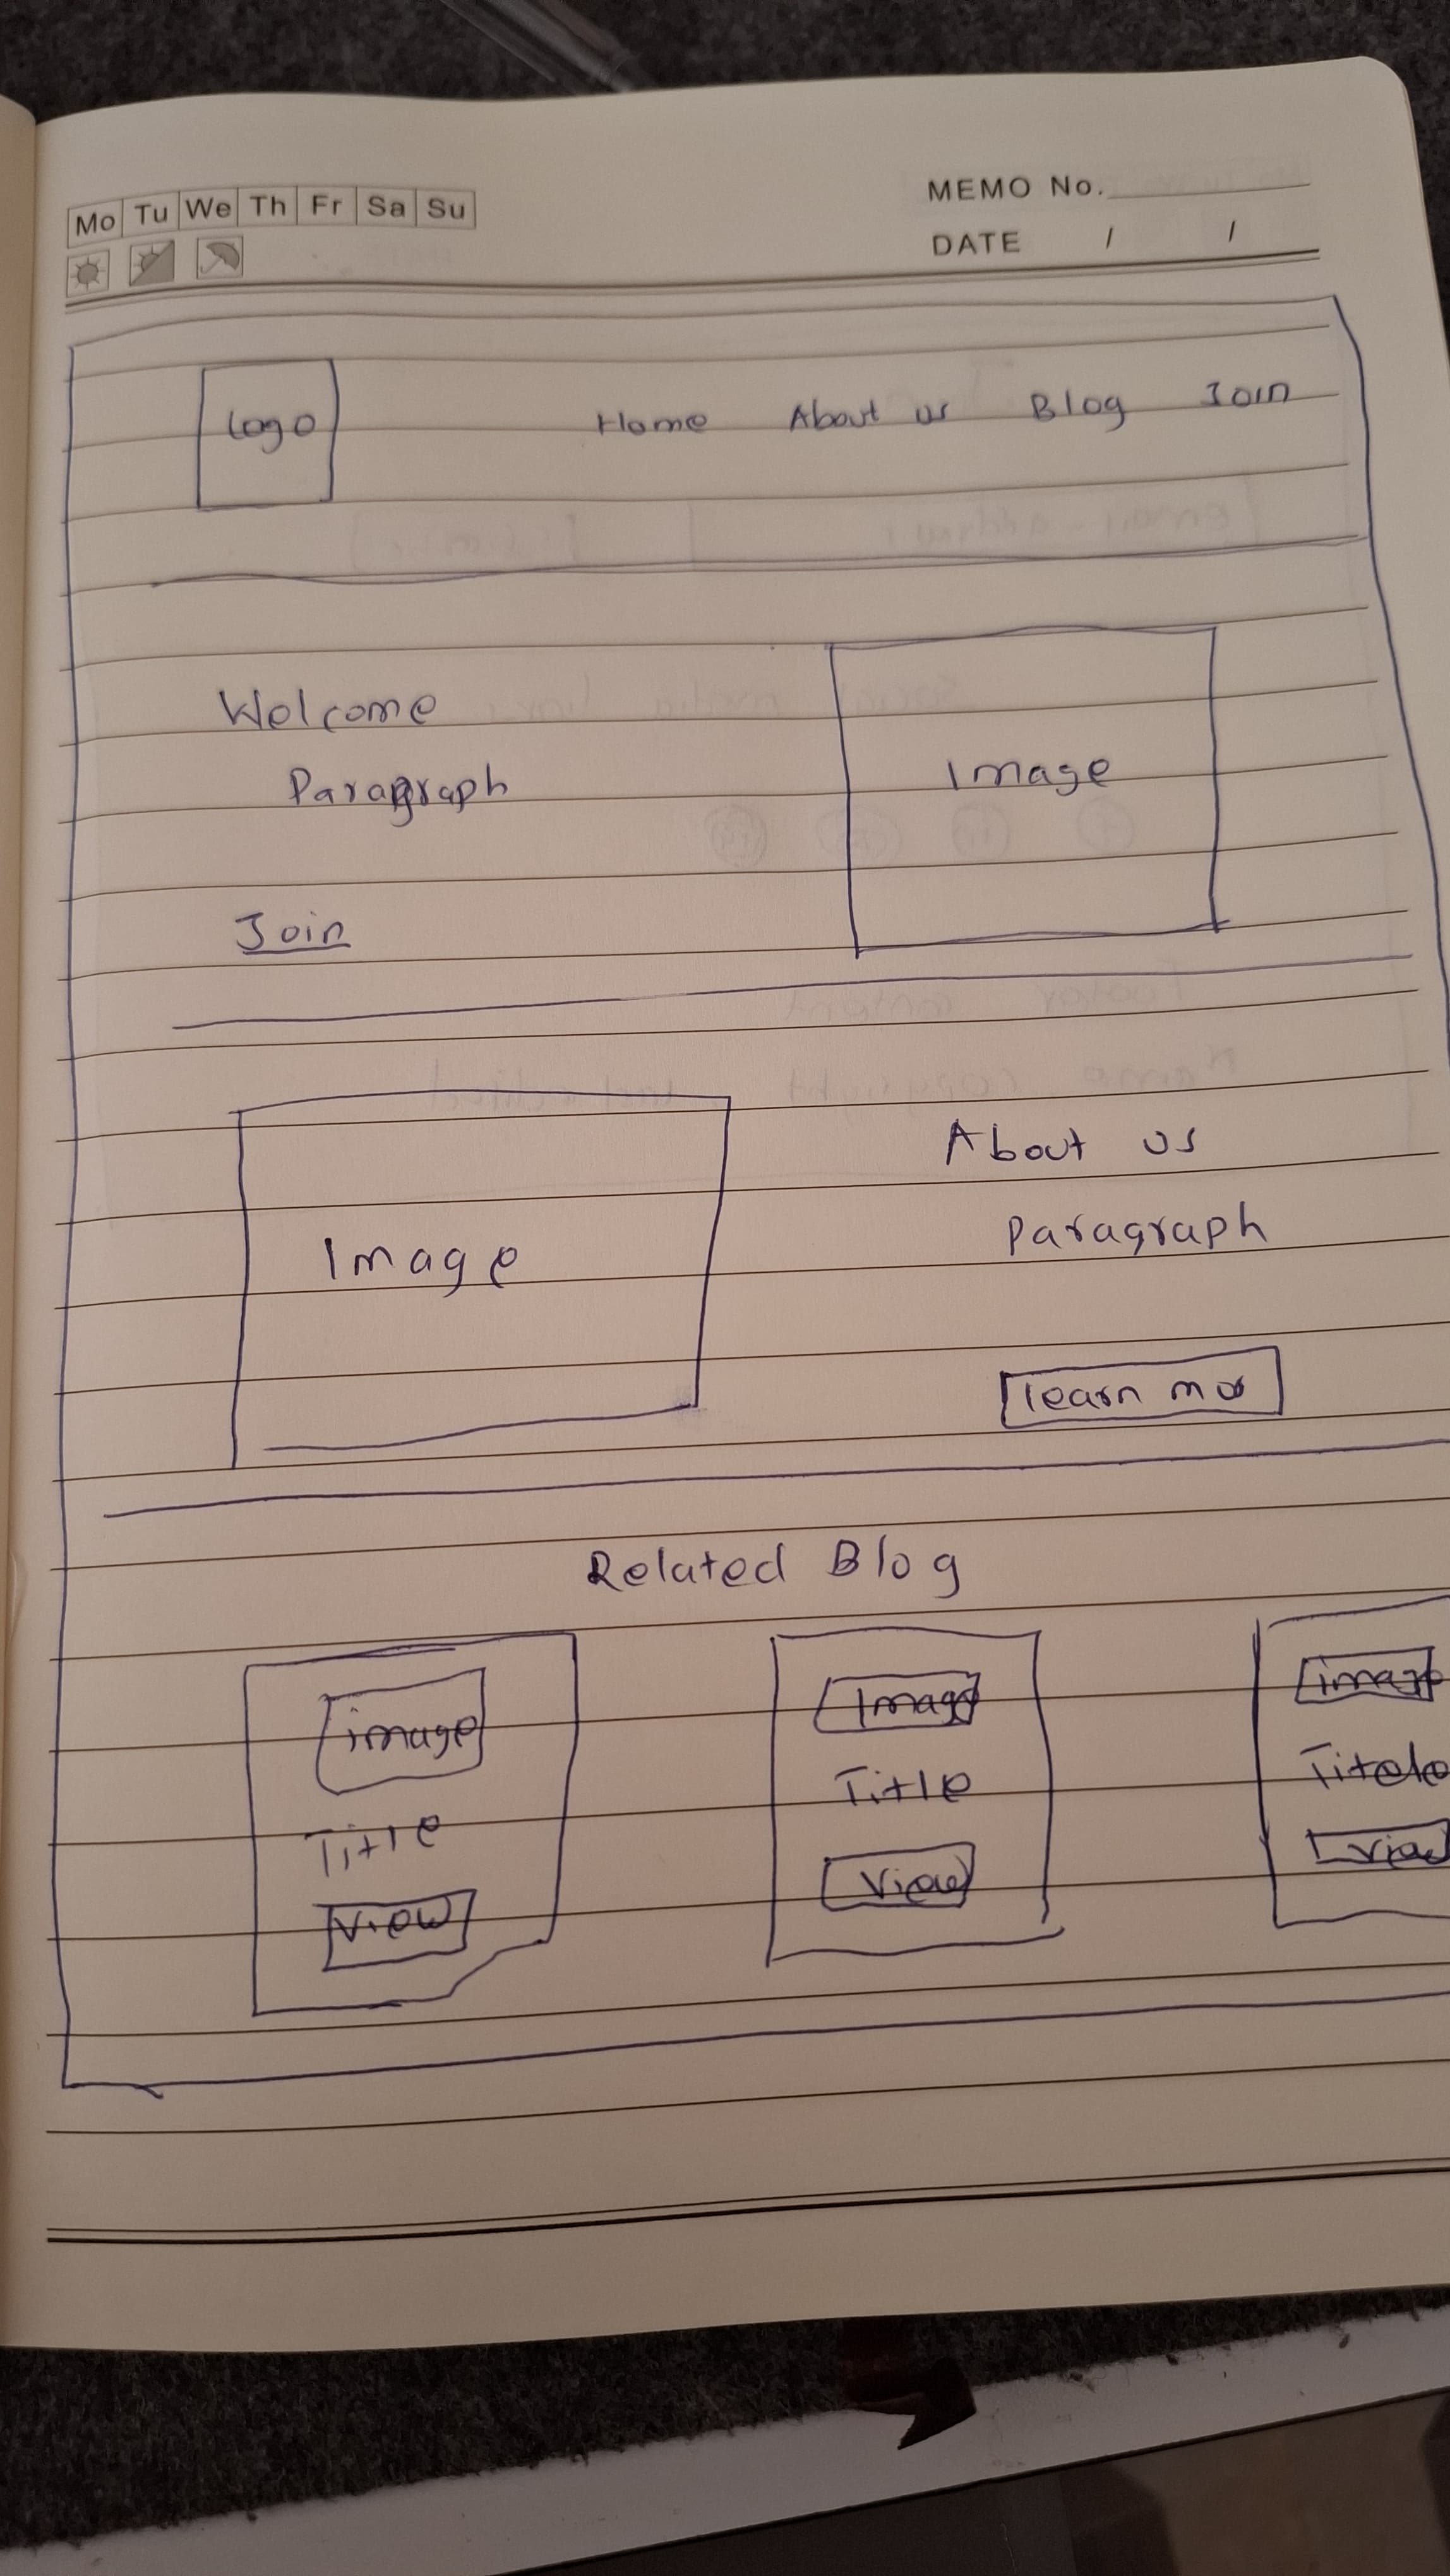 Mo Tu We Th Fr Sa Su
MEMO No.
DATE / /
Logo
Home About us Blog Join
Welcome
Paragraph
Image
Join
Image
About us
Paragraph
learn mor
Related Blog
image Image image
Title Title Titele
View View View